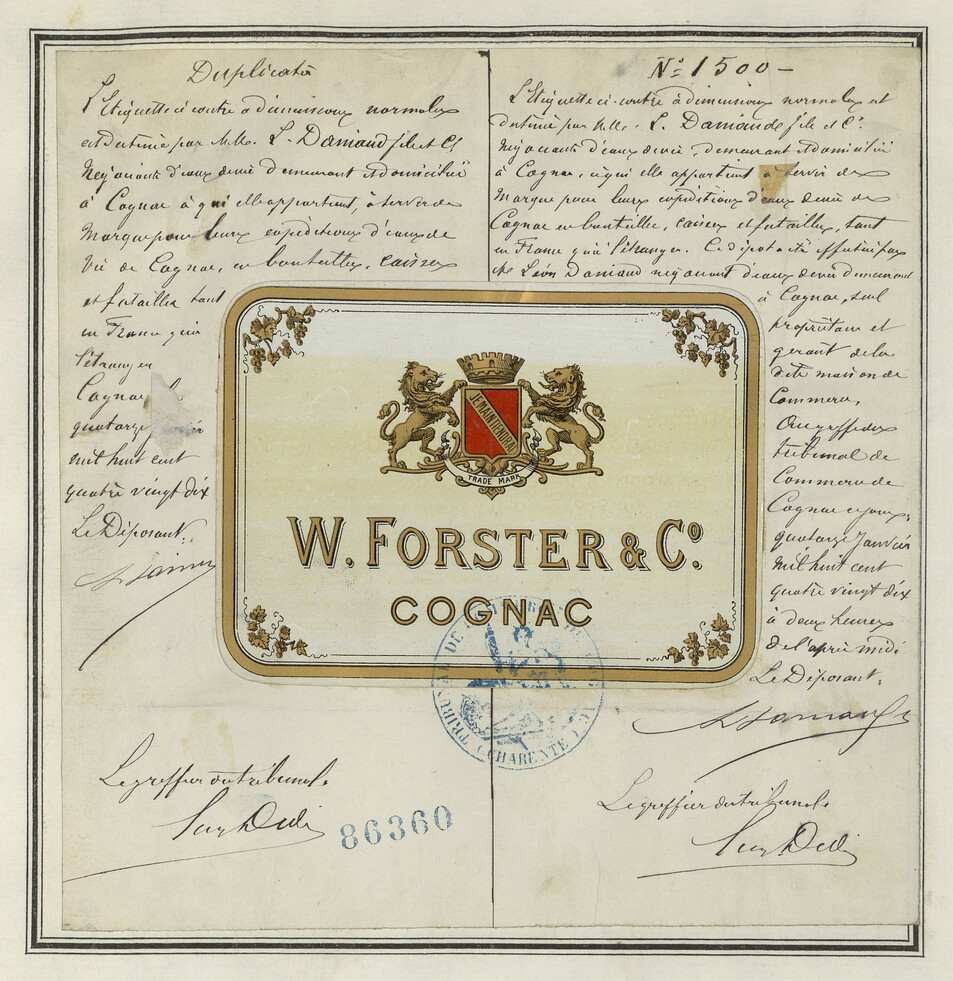 Duplicata
L'Etiquette ci contre à dimensions normales
est destinée par MM. L. Damiaud fils et Cie
Négociants d'eaux de vie demeurant et domiciliés
à Cognac à qui elle appartient, à servir de
Marque pour leurs expéditions d'eaux de
Vie de Cognac, en bouteilles, caisses
et futailles tant
en France qu'à
l'étranger
Cognac le
quatorze
mil huit cent
quatre vingt dix
Le Déposant:
Le greffier du tribunal
86360
No 1500 —
L'Etiquette ci-contre à dimensions normales est
destinée par MM. L. Damiaud fils et Cie
Négociants d'eaux de vie, demeurant et domiciliés
à Cognac, à qui elle appartient à servir de
Marque pour leurs expéditions d'eaux de vie de
Cognac en bouteilles, caisses et futailles, tant
en France qu'à l'étranger. Ce dépôt a été effectué par
Léon Damiaud négociant d'eaux de vie demeurant
à Cognac, seul
propriétaire et
gérant de la
dite maison de
Commerce,
Au greffe du
tribunal de
Commerce de
Cognac ce jour,
quatorze Janvier
mil huit cent
quatre vingt dix
à deux heures
de l'après midi
Le Déposant:
Le greffier du tribunal
JE MAINTIENDRAI
TRADE MARK
W. FORSTER & Co.
COGNAC
TRIBUNAL DE
(CHARENTE)